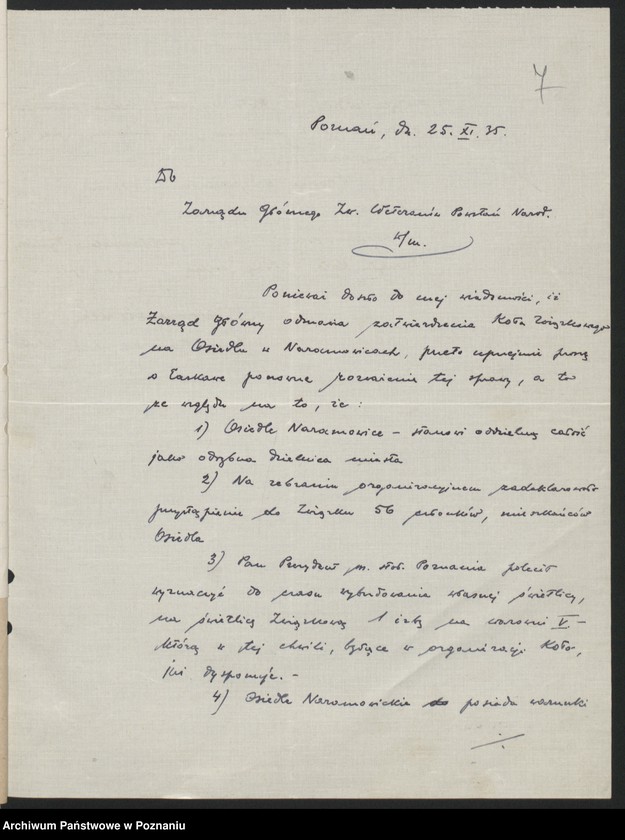 7
Poznań, dn. 25. XI. 35.
Do
Zarządu Głównego Zw. Weteranów Powstań Narod.
w/m.
Ponieważ doszło do mej wiadomości, iż
Zarząd Główny odmawia zatwierdzenia Koła Związkowego
na Osiedlu w Naramowicach, przeto uprzejmie proszę
o łaskawe ponowne rozważenie tej sprawy, a to
ze względu na to, iż:
1) Osiedle Naramowice – stanowi oddzielną całość
jako odrębna dzielnica miasta
2) Na zebraniu organizacyjnem zadeklarowało
przystąpienie do Związku 56 członków, mieszkańców
Osiedla
3) Pan Prezydent m. stoł. Poznania polecił
wyznaczyć do czasu wybudowania własnej świetlicy,
na świetlicę Związkową 1 izbę na warowni V –
którą w tej chwili, będące w organizacji Koło,
już dysponuje. –
4) Osiedle Naramowickie posiada warunki
./.
Archiwum Państwowe w Poznaniu